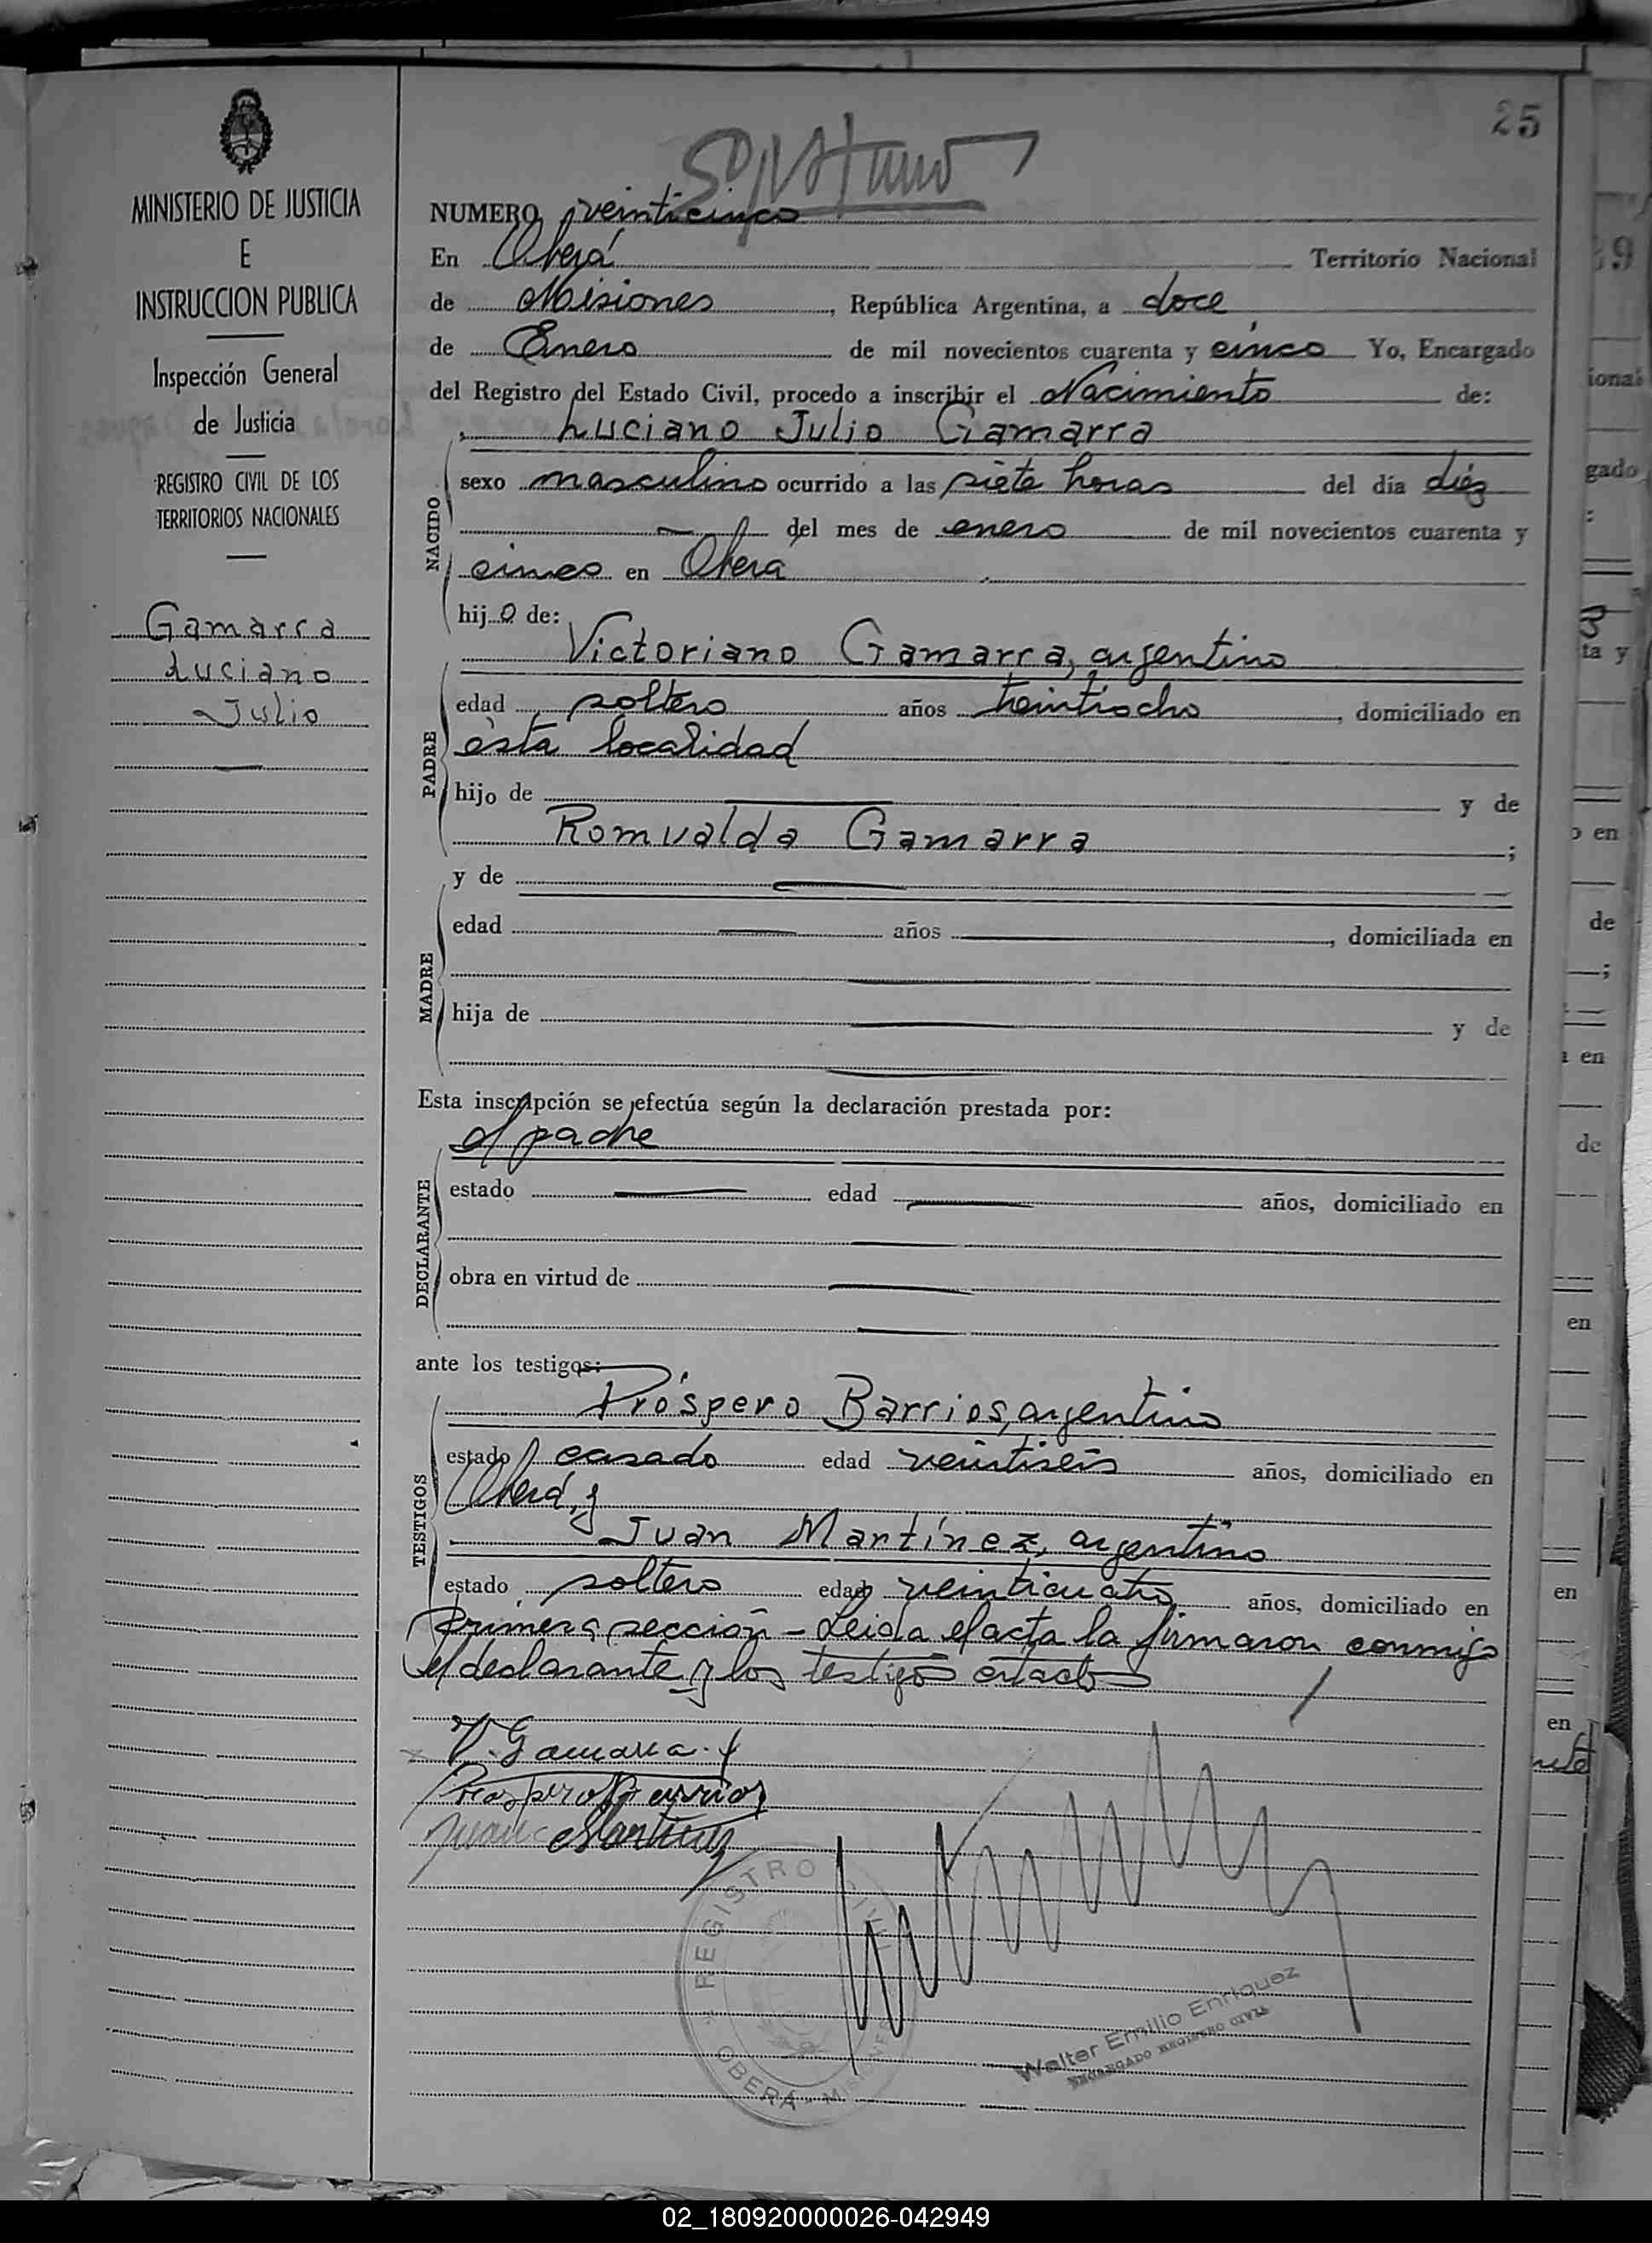 25
MINISTERIO DE JUSTICIA
E
INSTRUCCION PUBLICA
Inspección General
de Justicia
REGISTRO CIVIL DE LOS
TERRITORIOS NACIONALES
Gamarra
Luciano
Julio
NUMERO veinticinco
En Oberá Territorio Nacional
de Misiones, República Argentina, a doce
de Enero de mil novecientos cuarenta y cinco Yo, Encargado
del Registro del Estado Civil, procedo a inscribir el Nacimiento de:
Luciano Julio Gamarra
NACIDO
sexo masculino ocurrido a las siete horas del día diéz
del mes de enero de mil novecientos cuarenta y
cinco en Oberá
hijo de:
Victoriano Gamarra, argentino
PADRE
edad soltero años treintiocho, domiciliado en
ésta localidad
hijo de y de
Romualda Gamarra;
y de
MADRE
edad años, domiciliada en
hija de y de
Esta inscripción se efectúa según la declaración prestada por:
el padre
DECLARANTE
estado edad años, domiciliado en
obra en virtud de
ante los testigos:
Próspero Barrios, argentino
TESTIGOS
estado casado edad veintiséis años, domiciliado en
Oberá, y
Juan Martínez, argentino
estado soltero edad veinticuatro años, domiciliado en
primera sección - Leida el acta la firmaron conmigo
el declarante y los testigos citados
V. Gamarra
Prospero Barrios
Juan Martinez
REGISTRO CIVIL
OBERÁ - MISIONES
Walter Emilio Enriquez
ENCARGADO REGISTRO CIVIL
02_180920000026-042949